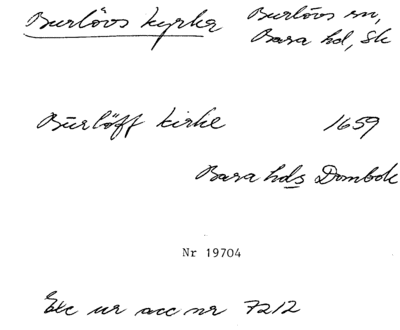 Burlövs kyrka
Burlövs sn,
Bara hd, Sk
Bürlöff kirke 1659
Bara hds Dombok
Nr 19704
Exc ur acc nr 7212